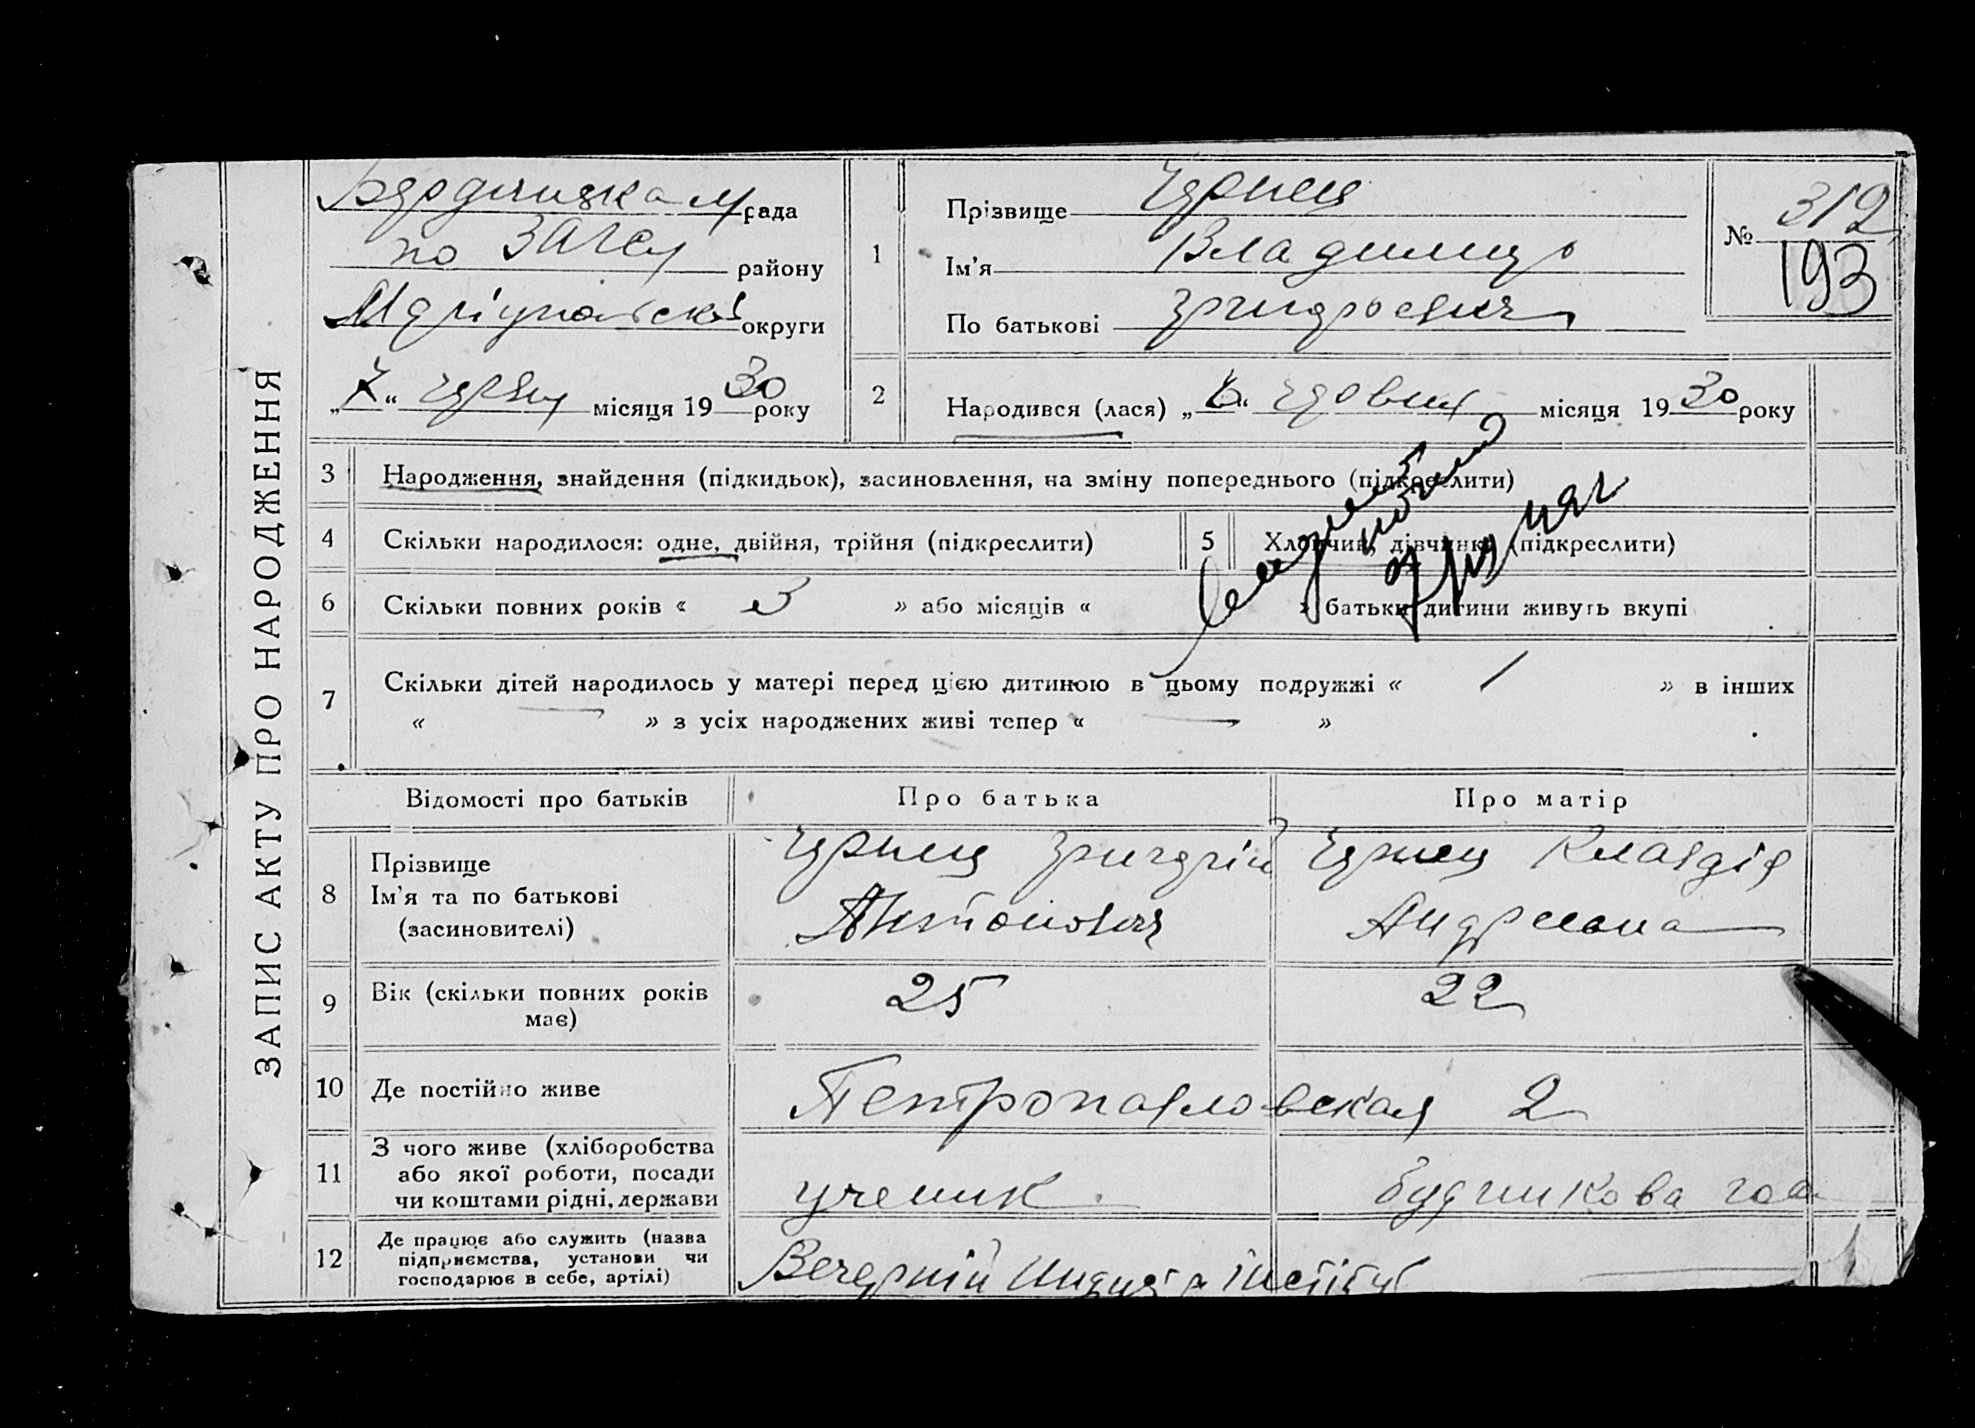 ЗАПИС АКТУ ПРО НАРОДЖЕННЯ
рада
по ЗАГСу
району
округи
„7“ місяця 1930 року
1
Прізвище Чернец
Ім'я Владимир
По батькові Григорьевич
№ 312
193
2
Народився (лася) „ “ червня місяця 1930 року
3 Народження, знайдення (підкидьок), засиновлення, на зміну попереднього (підкреслити)
4 Скільки народилося: одне, двійня, трійня (підкреслити)
5 Хлопчик, дівчинка (підкреслити)
6 Скільки повних років « 3 » або місяців « » батьки дитини живуть вкупі
7 Скільки дітей народилось у матері перед цією дитиною в цьому подружжі « 1 » в інших
« — » з усіх народжених живі тепер « — »
Відомості про батьків
Про батька
Про матір
8
Прізвище
Ім'я та по батькові
(засиновителі)
Чернец Григорій
Антонович
Чернец Клавдія
9
Вік (скільки повних років
має)
25
22
10 Де постійно живе
Петропавловская 2
11
З чого живе (хліборобства
або якої роботи, посади
чи коштами рідні, держави
ученик
12
Де працює або служить (назва
підприємства, установи чи
господарює в себе, артілі)
Вечерній